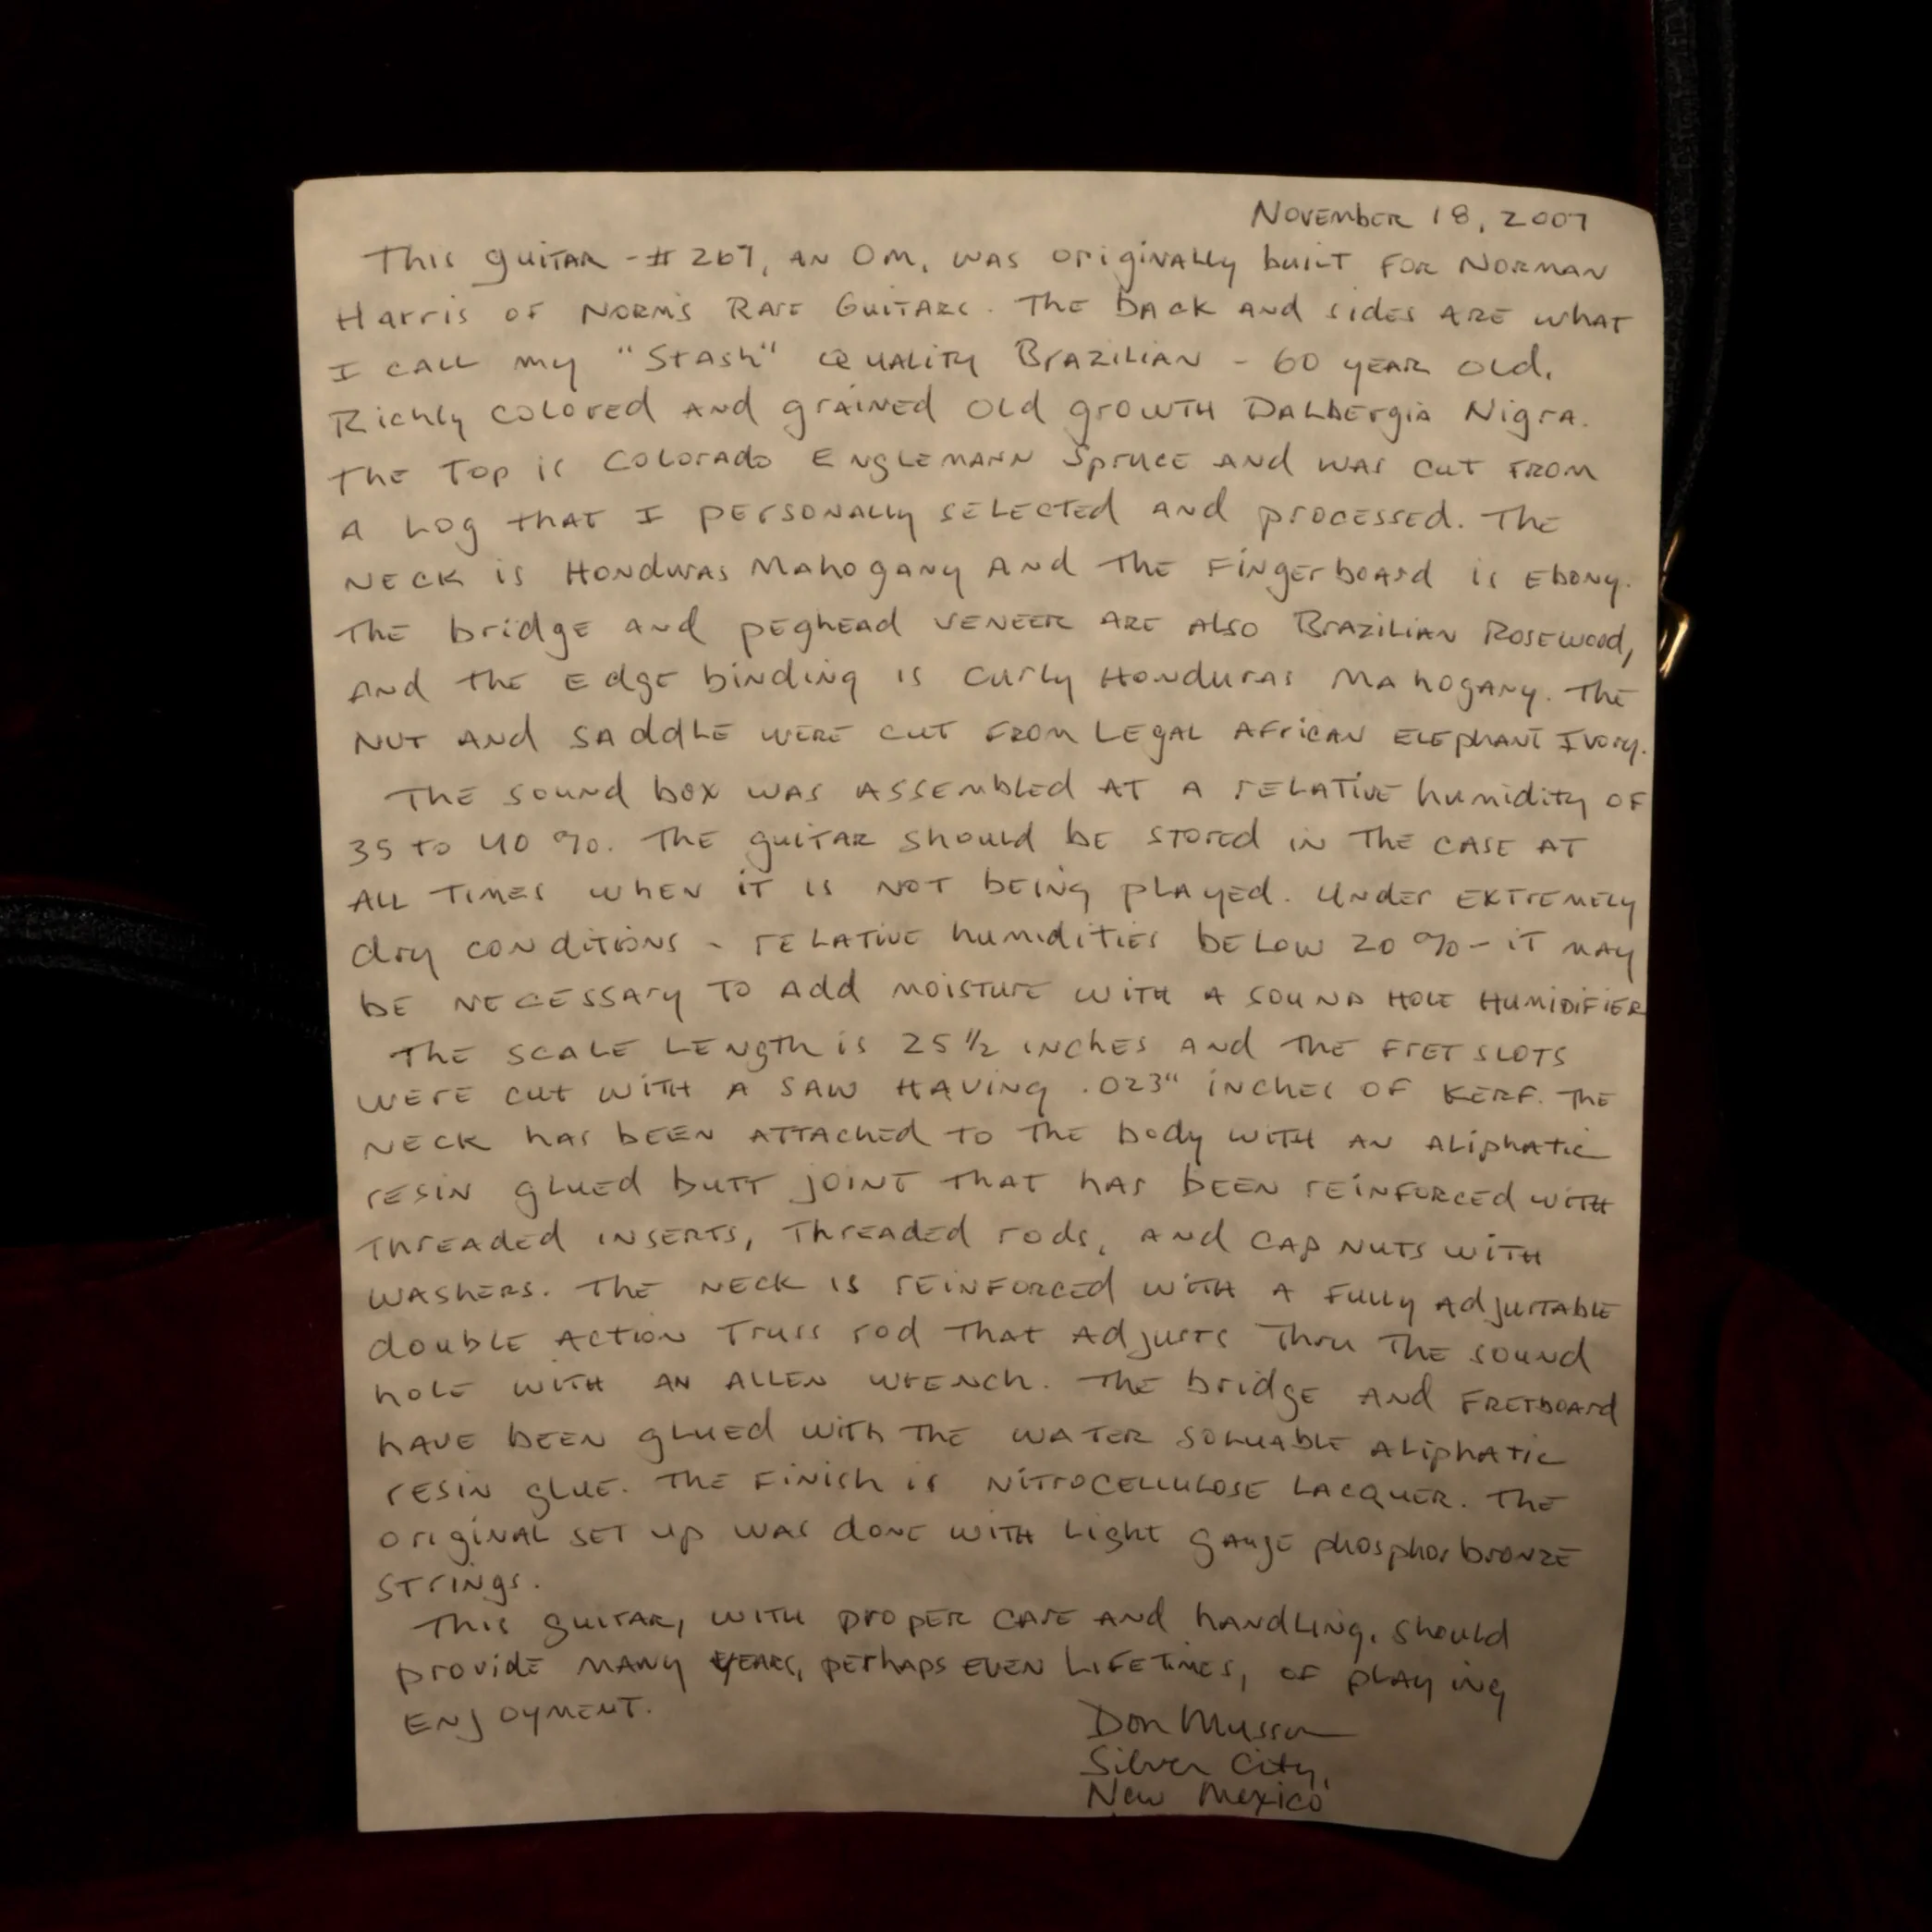 November 18, 2007
This guitar - # 267, an OM, was originally built for Norman
Harris of Norm's Rare Guitars. The back and sides are what
I call my "Stash" quality Brazilian - 60 year old.
Richly colored and grained old growth Dalbergia Nigra.
The top is Colorado Englemann Spruce and was cut from
a log that I personally selected and processed. The
neck is Honduras Mahogany and the fingerboard is Ebony.
The bridge and peghead veneer are also Brazilian Rosewood,
and the edge binding is curly Honduras Mahogany. The
nut and saddle were cut from legal African Elephant Ivory.
The sound box was assembled at a relative humidity of
35 to 40 %. The guitar should be stored in the case at
all times when it is not being played. Under extremely
dry conditions - relative humidities below 20 % - it may
be necessary to add moisture with a sound hole humidifier
The scale length is 25 1/2 inches and the fret slots
were cut with a saw having .023" inches of kerf. The
neck has been attached to the body with an aliphatic
resin glued butt joint that has been reinforced with
threaded inserts, threaded rods, and cap nuts with
washers. The neck is reinforced with a fully adjustable
double action truss rod that adjusts thru the sound
hole with an allen wrench. The bridge and fretboard
have been glued with the water soluable aliphatic
resin glue. The finish is nitrocellulose lacquer. The
original set up was done with light gauge phosphor bronze
strings.
This guitar, with proper care and handling, should
provide many years, perhaps even lifetimes, of playing
enjoyment.
Don Musser
Silver City,
New Mexico